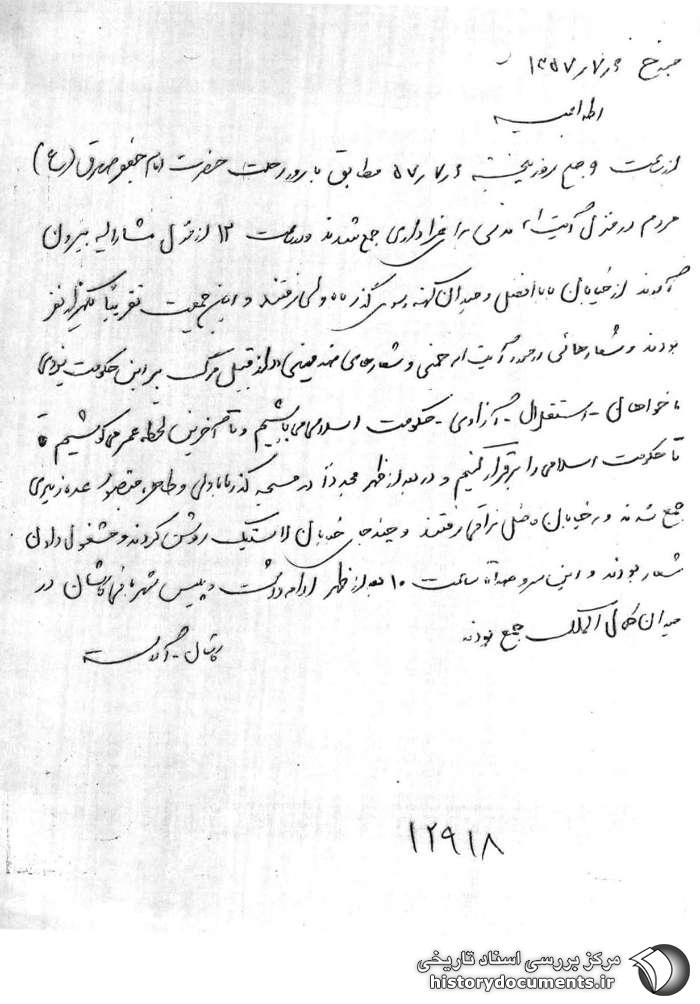 مورخ ۶ر۷ر۱۳۵۷
اطلاعیه
از ساعت ۹ صبح روز پنجشنبه ۶ر۷ر۵۷ مطابق با روز رحلت حضرت امام جعفر صادق (ع)
مردم در منزل آیت اله مدنی برای عزاداری جمع شدند و در ساعت ۱۲ از منزل مشارالیه بیرون
آمدند از خیابان بابا افضل و میدان کهنه بسوی گذر بابا ولی رفتند و این جمعیت تقریباً یکهزار نفر
بودند و شعارهائی در مورد آیت اله خمینی و شعارهای ضد میهنی از قبیل مرگ بر این حکومت یزیدی
ما خواهان - استقلال - آزادی - حکومت اسلامی می باشیم و تا آخرین لحظه عمر می کوشیم
تا حکومت اسلامی را برقرار کنیم و در بعد از ظهر مجدداً در مسجد گذر بابا ولی و عده زیادی
جمع شدند و به خیابان فاضل نراقی رفتند و چند جای خیابان لاستیک روشن کردند و مشغول دادن
شعار بودند و این سر و صدا تا ساعت ۱۰ بعد از ظهر ادامه داشت و پلیس شهربانی کاشان در
میدان کمال الملک جمع بودند
کاشان -
۱۲۹۱۸
مرکز بررسی اسناد تاریخی
historydocuments.ir